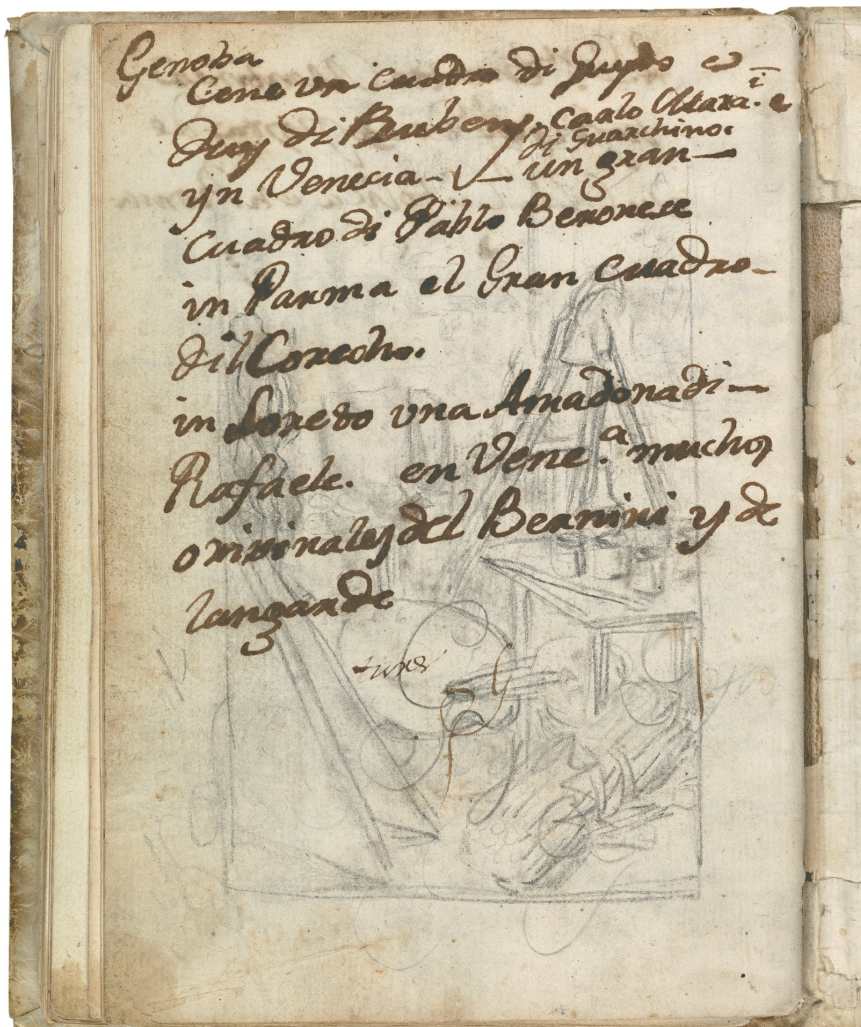 Genoba
Cene un cuadro di Guydo e
duy di Rubens. carlo Marai. e
di Guarchino.
yn Venecia - un gran
cuadro di Pablo Beronese
in Parma el Gran cuadro
dil Corecho.
in Loreto una Amadona di
Rafaele. en Vene.ª muchos
orixinales del Bernini y de